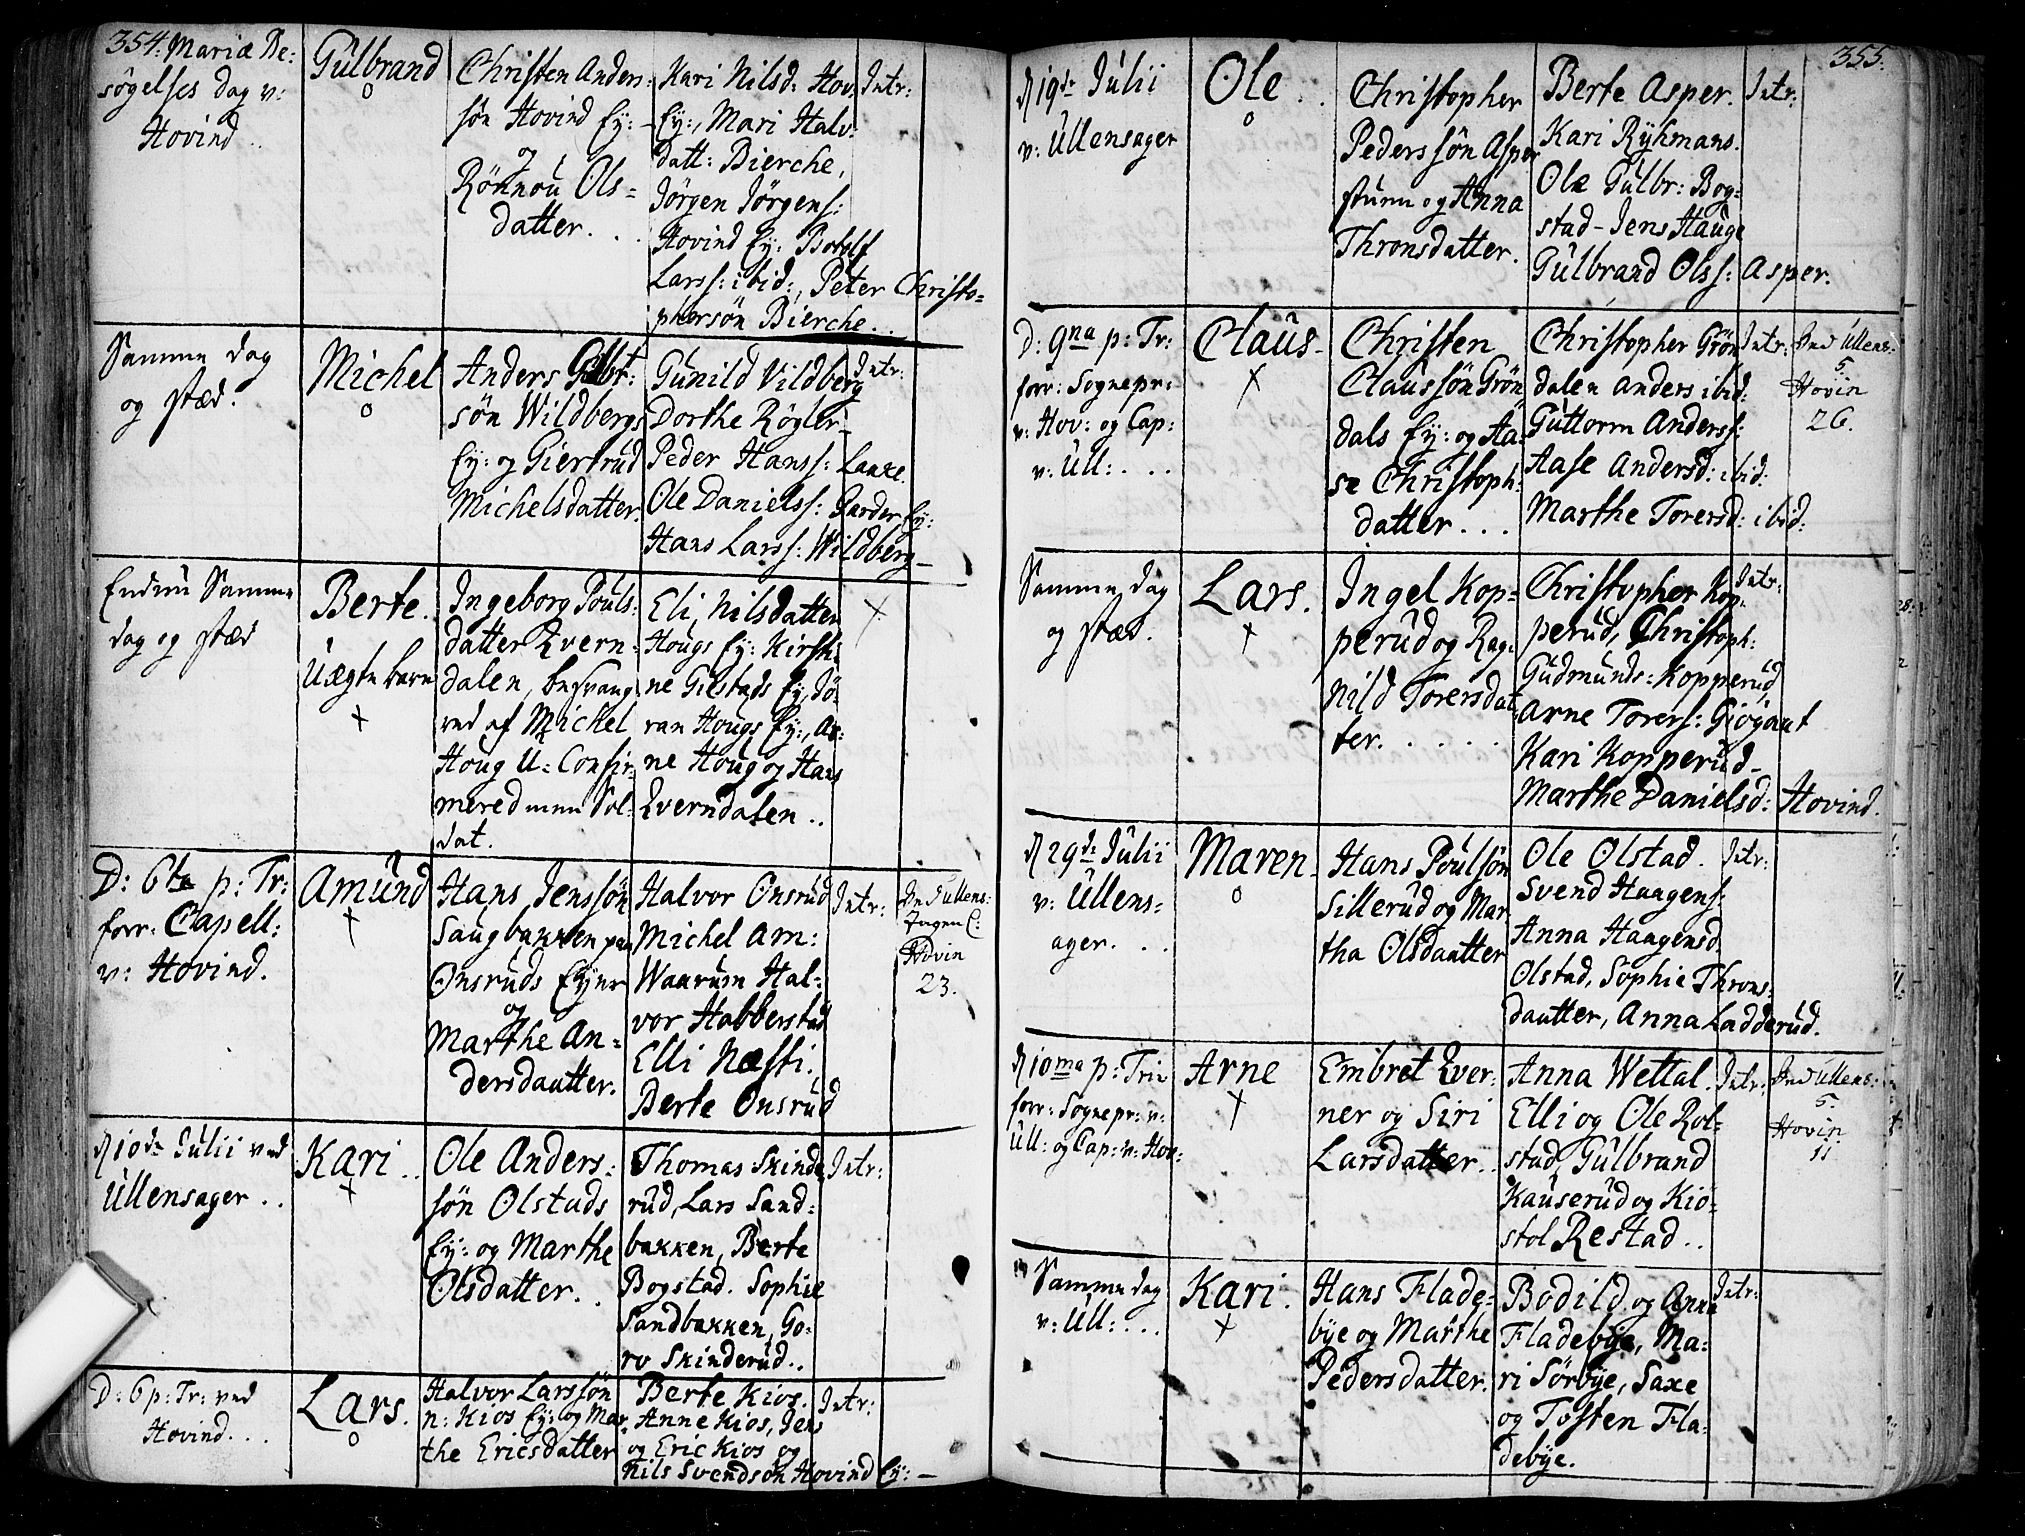 354.
Mariæ Be:
søgelses dag v:
Hovind..
Gulbrand
o
Christen Anders:
søn Hovind Ey: -
og
Rönnou Ols=
datter. . .
Kari Nilsd: Hov:
Ey:, Mari Halv:
datt: Bierche,
Jörgen Jörgens:
Hovind Ey: Botolf
Larss: ibid:, Peter Christo=
phersön Bierche..
Intr:
Samme dag
og stæd.
Michel
o
Anders Glbr:
søn Wildbergs
Ey: og Giertrud
Michelsdatter.
Gunild Vildberg
Dorthe Rögler-
Peder Hanss: Laxe.
Ole Danielss: Garder Ey:
Hans Larss: Wildberg-
Intr:
Endnu Samme
dag og stæd
Berte.
Uægte barn
+
Ingeborg Pouls-
datter Kvern=
dalen, besvang
red af Michel
Houg U= Confir=
mered mun Sol=
dat.
Eli Nilsdatter
Hougs Ey: Kirsti:
ne Giestads Ey, Jö:
ran Hougs Ey:, Ar:
ne Houg og Hans
Kverndalen ..
+
D: 6ta p: Tr:
forr: Capell:
v: Hovind.
Amund
+
Hans Jenssön
Saugbakken paa
Onsruds Eyer
og
Marthe An=
dersdautter.
Halvor Onsrud
Michel Am:
Waarum Hal=
vor Habberstad
Elli Næsti.
Berte Onsrud
Intr:
Ved Ullens:
Ingen C:
Hovin
23.
d 10de Julii ved
Ullensager ..
Kari ..
+
Ole Anders:
søn Olstads
Ey: og Marthe
Olsdatter. .
Thomas Skinde
rud, Lars Sand=
bakken, Berte
Bogstad. Sophie
Sandbakken, Go=
ro Skinderud..
Intr:
D: 6 p: Tr: ved
Hovind. . .
Lars.
o
Halvor Larssön
n: Kios Ey: og Mar
the Ericsdatter
Berte Kios.
Anne Kios, Jens
og Eric Kios og
Nils Svendsøn Hovind Ey: -
Intr:
355.
d 19de Julii
v: Ullensager
Ole . .
o
Christopher
Pederssön Asper
sturu og Anna
Thronsdatter.
Berte Asper.
Kari Ryhmans.
Ole Gulbr: Bog=
stad - Jens Hauge
Gulbrand Olss: Asper.
Intr:
D: 9na p: Tr:
forr: Sognepr:
v: Hov: og Cap:
v: Ull: . . .
Claus-
+
Christen
Claussön Grön
dals Ey: og Aa=
se Christoph:
datter . . .
Christopher Grön
dalen Anders ibid:
Guttorm Anderss:
Aase Andersd: ibid:
Marthe Torersd: ibid:
Intr:
Ved Ullens:
5.
Hovin
26.
Samme dag
og stæd.
Lars.
+
Ingel Kop=
perud og Rag=
nild Torersdat
ter. . . . .
Christopher Kop-
perud, Christoph:
Gudmunds: Kopperud,
Arne Torers: Giögaut
Kari Kopperud-
Marthe Danielsd: Hovind.
Intr:
d 29de Julii
v: Ullens=
ager. . .
Maren-
o
Hans Poulsön
Sillerud og Mar
tha Olsdautter
Ole Olstad.
Svend Haagens:
Anna Haagensd
Olstad, Sophie Throns=
dautter, Anna Ladderud.
Intr:
d 10ma p: Trin
forr: Sognepr: v:
Ull: og Cap: v: Hov:
Arne
+
Embret Ever=
ner og Siri
Larsdatter..
Anna Wettal.
Elli og Ole Rol=
stad, Gulbrand
Kauserud og Kiö=
stol Restad ..
Intr:
Ved Ullens:
5.
Hovin
11
Samme dag
v: Ull: . . .
Kari.
+
Hans Flade=
bye og Marthe
Pedersdatter.
Bodild og Anne
Fladebye, Ma=
ri Sörbye, Saxe
og Tosten Fla=
debye.
Intr: